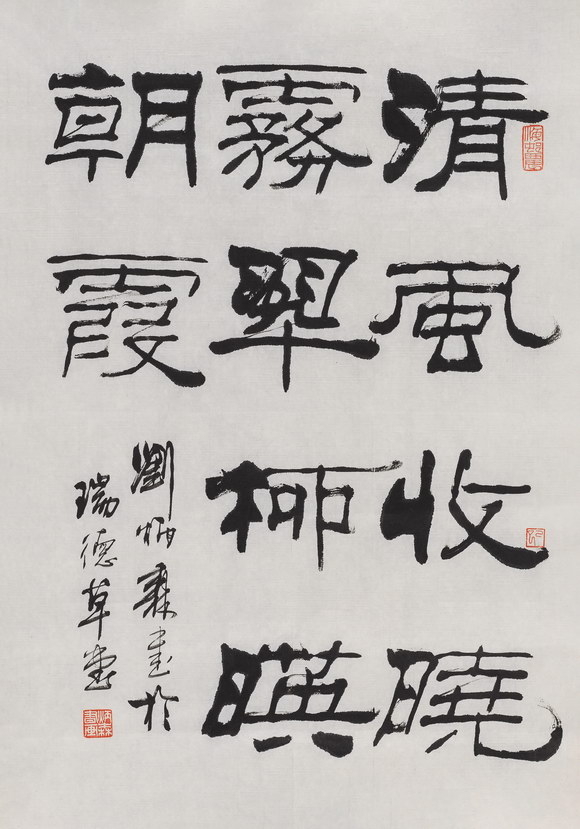 清風收曉
霧翠柳暎
朝霞
劉炳森書於
瑞德草堂